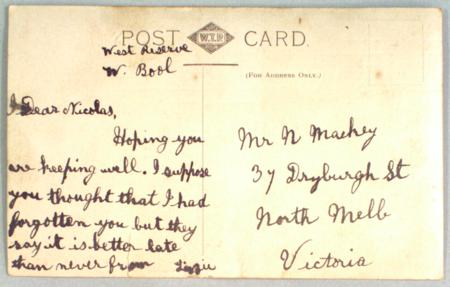 POST W.T.P. CARD.
West Reserve
W. Bool
(FOR ADDRESS ONLY.)
Dear Nicolas,
Hoping you
are keeping well. I suppose
you thought that I had
forgotten you but they
say it is better late
than never from Lizzie
Mr N Mackey
37 Dryburgh St
North Melb
Victoria